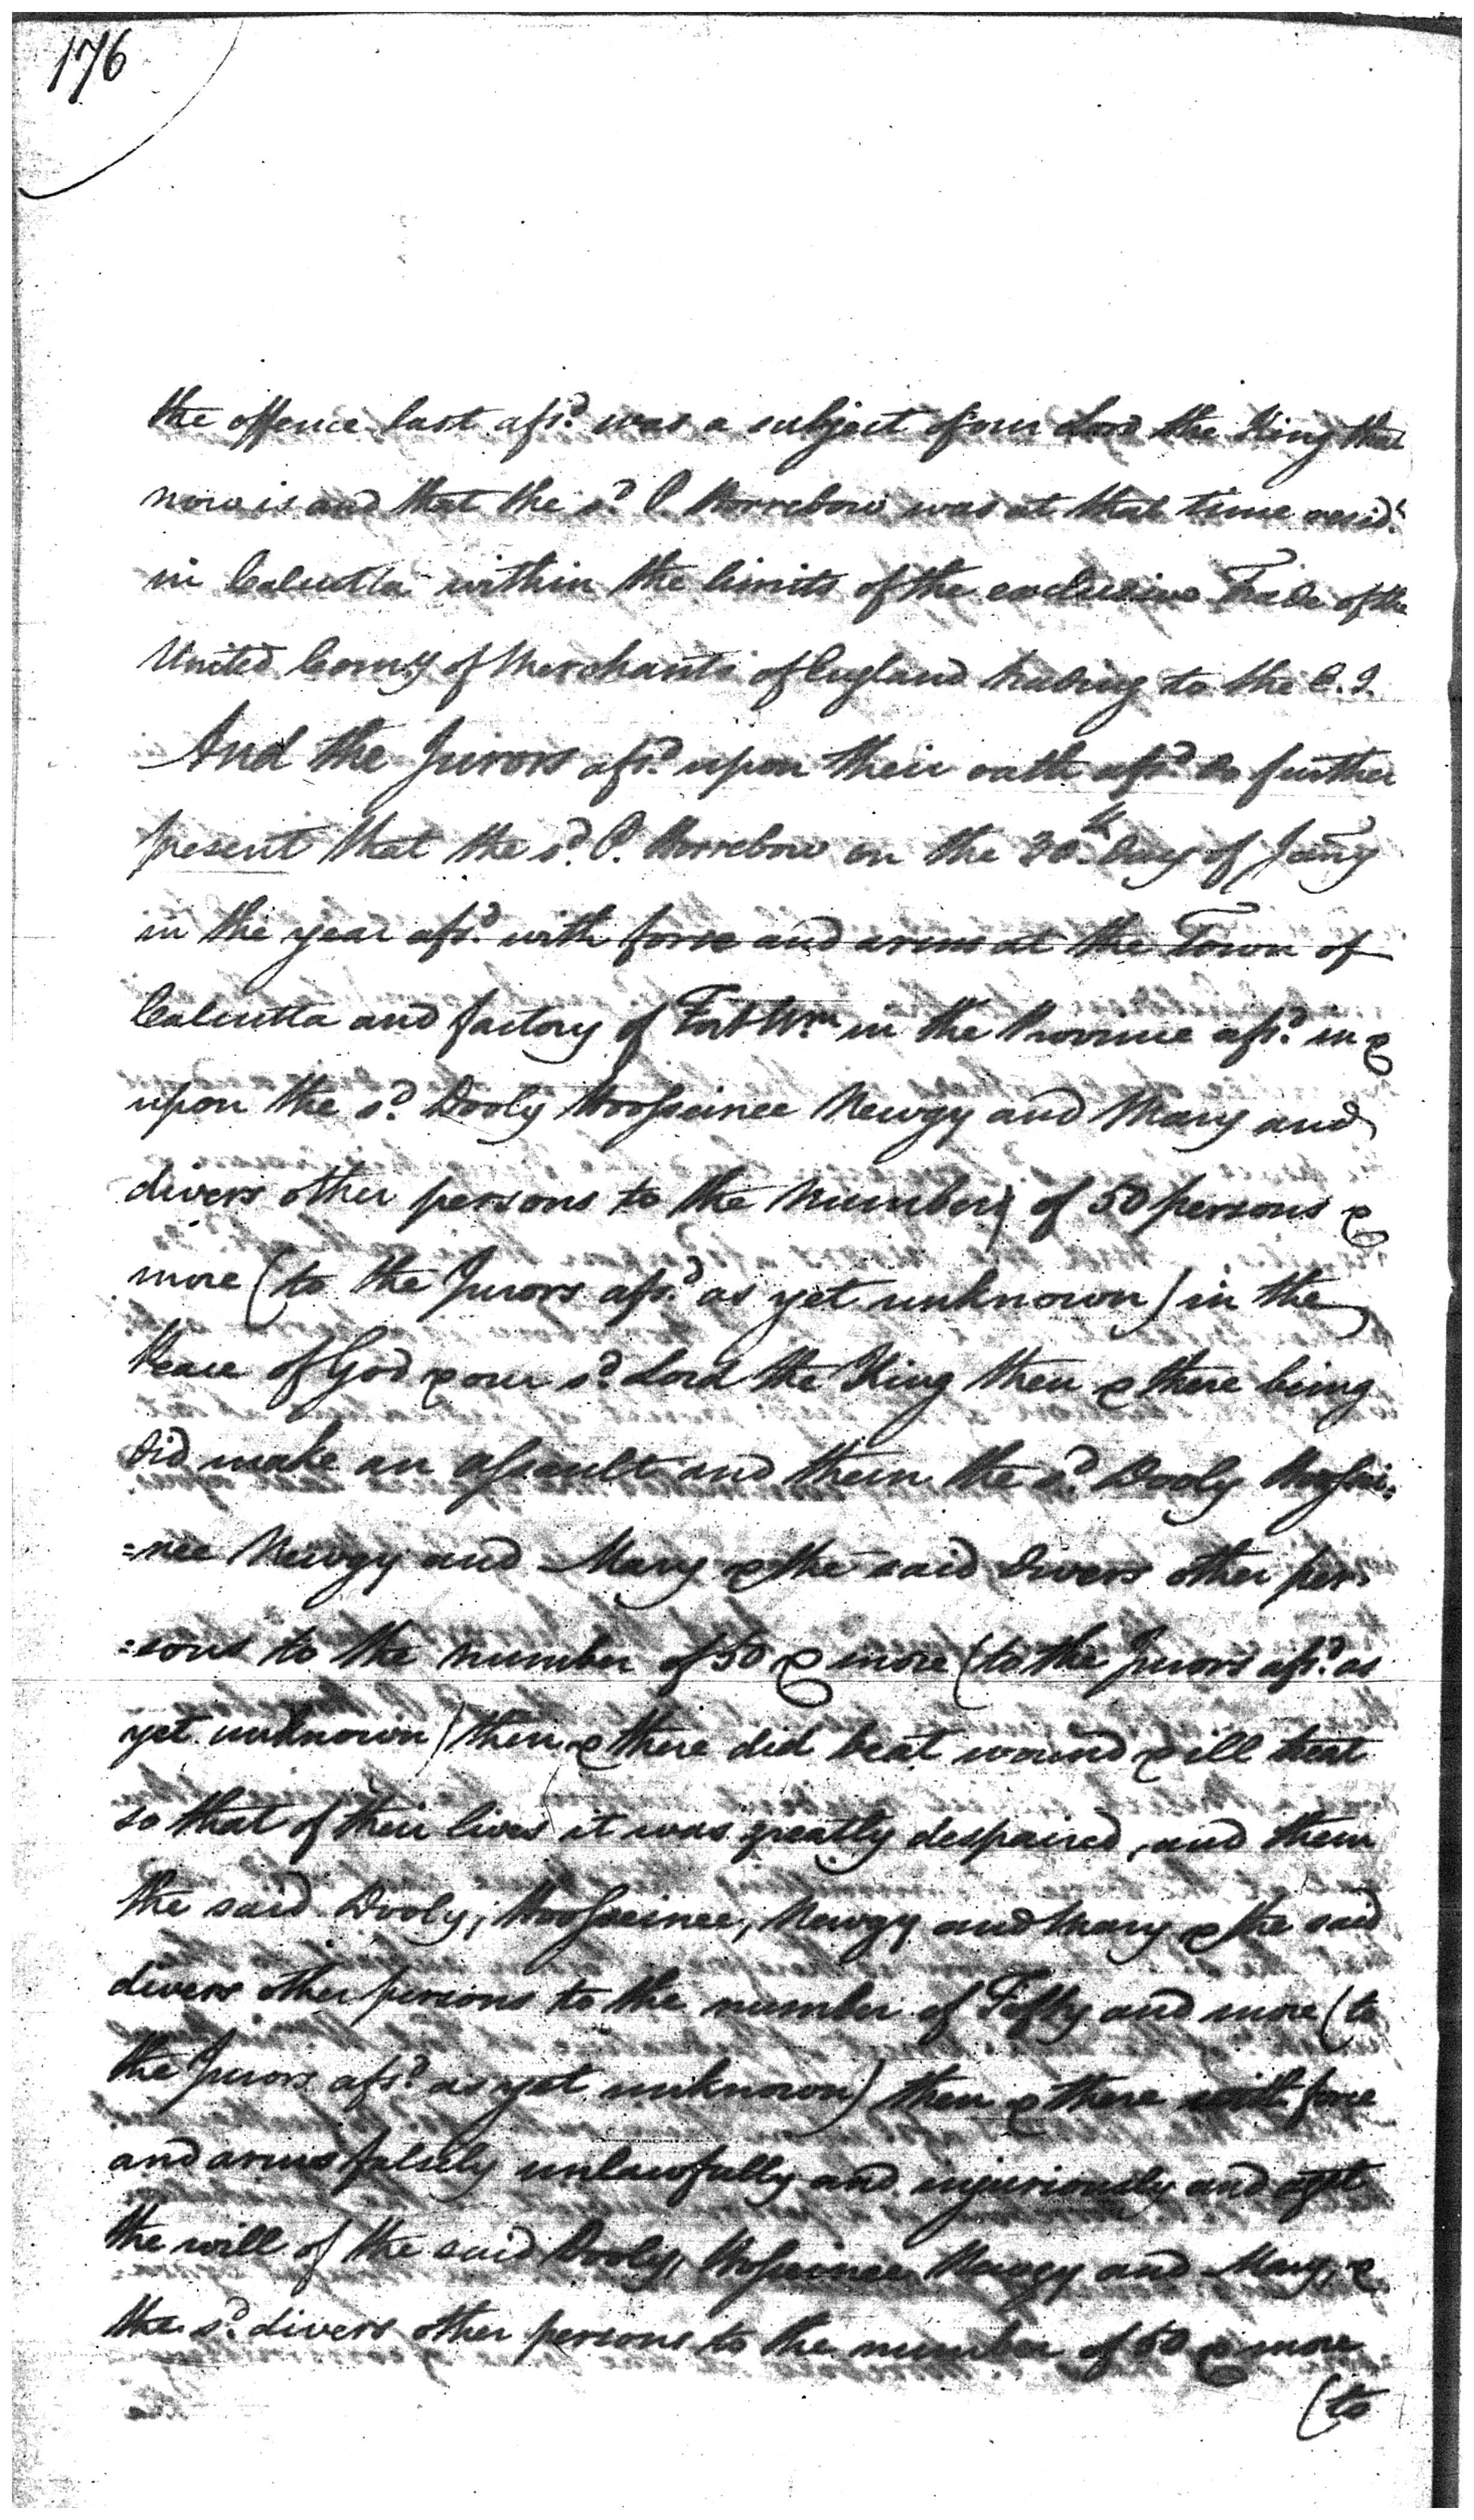 176
the offence last afs.d was a subject of our Lord the King that
now is and that the s.d P. Horrebow was at that time resid.t
in Calcutta within the limits of the exclusive Trade of the
United Com.y of Merchants of England trading to the E. I.
And the Jurors afs.d upon their oath afs.d do further
present that the s.d P. Horrebow on the 30.th day of Jany
in the year afs.d with force and arms at the Town of
Calcutta and factory of Fort W.m in the Province afs.d in &
upon the s.d Dooly Hoosseinee Newgy and Mary and
divers other persons to the number of 50 persons &
more (to the Jurors afs.d as yet unknown) in the
Peace of God & our s.d Lord the King then & there being
did make an assault and them the s.d Dooly Hossei=
=nee Newgy and Mary & the said divers other per=
=sons to the number of 50 & more (to the Jurors afs.d as
yet unknown) then & there did beat wound & ill treat
so that of their lives it was greatly despaired, and them
the said Dooly, Hoosseinee, Newgy and Mary & the said
divers other persons to the number of Fifty and more (to
the Jurors afs.d as yet unknown) then & there with force
and arms falsely unlawfully and injuriously and agst
the will of the said Dooly, Hosseinee Newgy and Mary, &
the s.d divers other persons to the number of 50 & more
(to